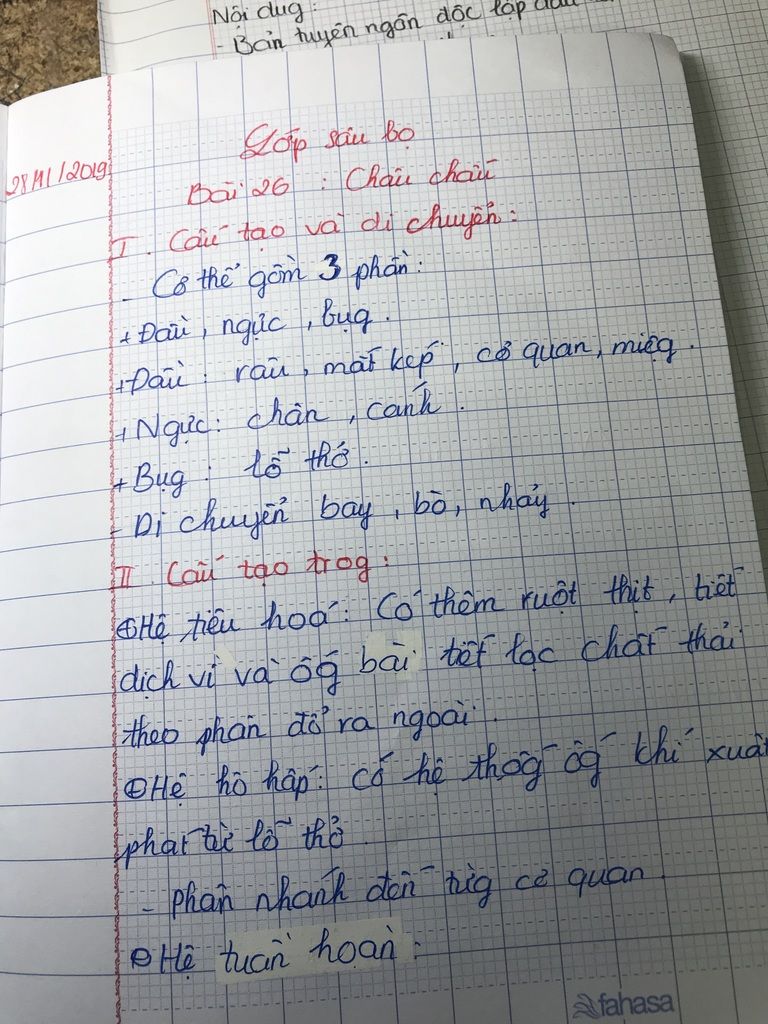 Nội dug:
- Bản tuyên ngôn độc lập đầu
28/11/2019
Lớp sâu bọ
Bài 26 : Châu chấu
I. Cấu tạo và di chuyển:
- Cơ thể gồm 3 phần:
+ Đầu, ngực, bụg.
+ Đầu: râu, mắt kép, cơ quan, miệg.
+ Ngực: chân, cánh.
+ Bụg: lỗ thở.
- Di chuyển bay, bò, nhảy.
II. Cấu tạo trog:
⊕ Hệ tiêu hoá: Có thêm ruột thịt, tiết
dịch vị và ốg bài tiết lọc chất thải
theo phân đổ ra ngoài.
⊕ Hệ hô hấp: có hệ thốg ốg khí xuất
phát từ lỗ thở.
- phân nhánh đến từg cơ quan.
⊕ Hệ tuần hoàn:
fahasa